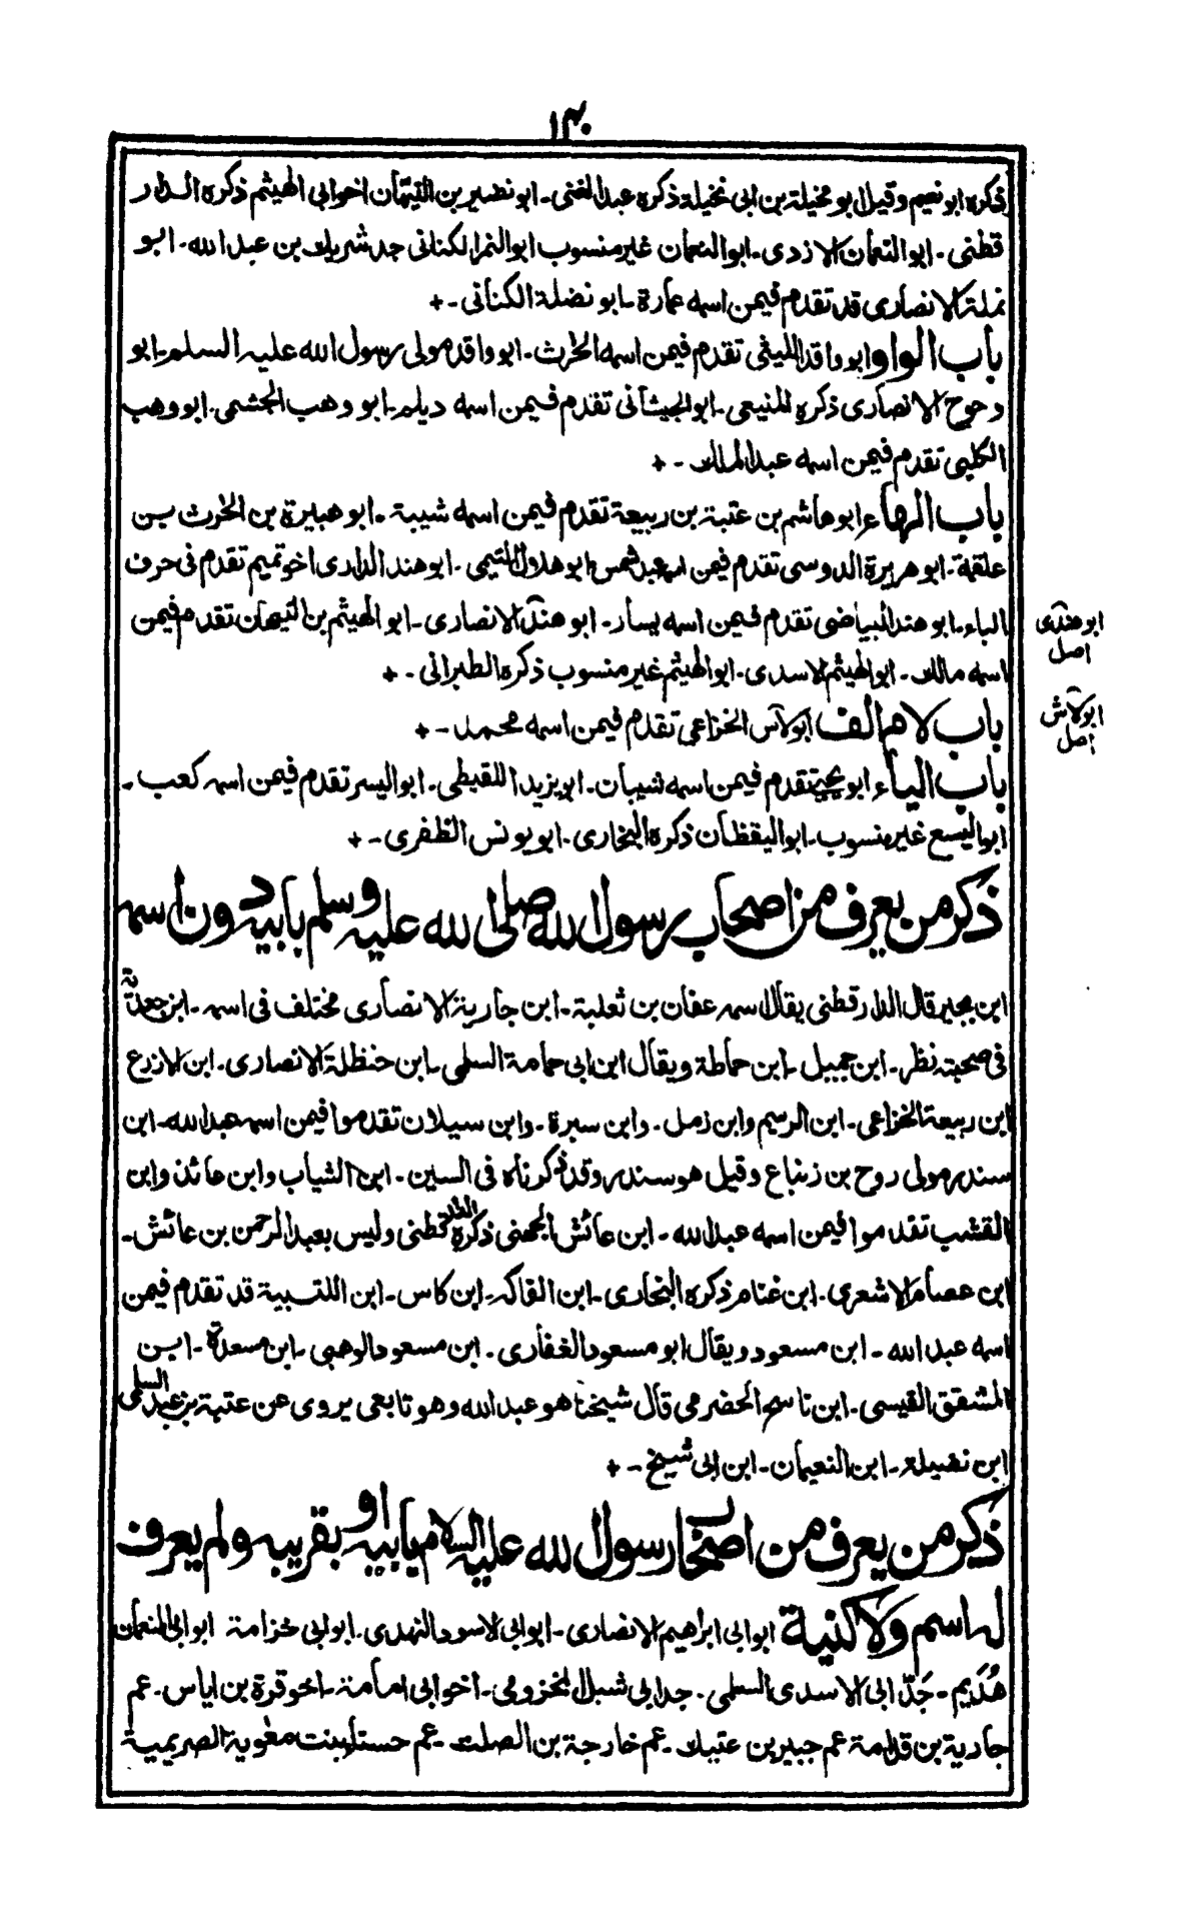 ١٣٠
ذكره ابو نعيم وقيل ابو مخيلة بن ابى نخيلة ذكره عبد الغنى۔ ابو نضير بن التيهان اخو ابى الهيثم ذكره الدار
قطنى۔ ابو النعمان الازدى۔ ابو النعمان غير منسوب ابو النمر الكنانى جد شريك بن عبد الله۔ ابو
نملة الانصارى قد تقدم فيمن اسمه عمارة۔ ابو نضلة الكنانى۔+
باب الواو ابو واقد الليثى تقدم فيمن اسمه الحٰرث۔ ابو واقد مولى رسول الله عليه السلم۔ ابو
دحوح الانصارى ذكره المنيعى۔ ابو الجيشانى تقدم فيمن اسمه ديلم۔ ابو وهب الجشمى۔ ابو وهب
الكلبى تقدم فيمن اسمه عبد الملك۔+
باب الهاء ابو هاشم بن عتبة بن ربيعة تقدم فيمن اسمه شيبة۔ ابو هبيرة بن الحٰرث بن
علقمة۔ ابو هريرة الدوسى تقدم فيمن اسمه عبد شمس ابو هلال التيمى۔ ابو هند الدارى اخو تميم تقدم فى حرف
الباء۔ ابو هند البياضى تقدم فيمن اسمه يسار۔ ابو هند الانصارى۔ ابو الهيثم بن التيهان تقدم فيمن
ابو هندى
اصل
اسمه مالك۔ ابو الهيثم الاسدى۔ ابو الهيثم غير منسوب ذكره الطبرانى۔+
باب لام الف ابو لاس الخزاعى تقدم فيمن اسمه محمد۔+
ابو لاش
اصل
باب الياء ابو يحيى تقدم فيمن اسمه شيبان۔ ابو يزيد اللقيطى۔ ابو اليسر تقدم فيمن اسمه كعب۔
ابو اليسع غير منسوب۔ ابو اليقظان ذكره البخارى۔ ابو يونس الظفرى۔+
ذكر من يعرف من اصحاب رسول الله صلى الله عليه وسلم بابيه دون اسمه
ابن بجير قال الدارقطنى يقال اسمه عفان بن ثعلبة۔ ابن جارية الانصارى مختلف فى اسمه۔ ابن جعدبة
فى صحبته نظر۔ ابن جميل۔ ابن حماطة ويقال ابن ابى حمامة السلمى۔ ابن حنظلة الانصارى۔ ابن الازرع
ابن ربيعة الخزاعى۔ ابن الرسيم وابن زمل۔ وابن سبرة۔ وابن سيلان تقدموا فيمن اسمه عبد الله۔ ابن
سندر مولى روح بن زنباع وقيل هو سندر وقد ذكرناه فى السين۔ ابن الشياب وابن عائذ وابن
القشب تقدموا فيمن اسمه عبد الله۔ ابن عائش الجهنى ذكره الدارقطنى وليس بعبد الرحمن بن عائش۔
ابن عصام الاشعرى۔ ابن غنام ذكره البخارى۔ ابن الفاكه۔ ابن كاس۔ ابن اللتبية قد تقدم فيمن
اسمه عبد الله۔ ابن مسعود ويقال ابو مسعود الغفارى۔ ابن مسعود الوهبى۔ ابن مسعدة۔ ابن
المشفق القيسى۔ ابن ناسح الحضرمى قال شيخنا هو عبد الله وهو تابعى يروى عن عتبة بن عبد السلمى
ابن نضيلة۔ ابن النعيمان۔ ابن ابى شيخ۔+
ذكر من يعرف من اصحاب رسول الله عليه السلام بابيه او بقريبه ولم يعرف
له اسم ولا كنية ابو ابى ابراهيم الانصارى۔ ابو ابى الاسود النهدى۔ ابو ابى خزامة ابو ابى النعمان
هُدَيم۔ جَدّ ابى الاسدى السلمى۔ جد ابى شبل المخزومى۔ اخو ابى امامة۔ اخو قرة بن اياس۔ عم
جارية بن قدامة عم جبير بن عتيك۔ عم خارجة بن الصلت۔ عم حسناء بنت معٰوية الصريمية